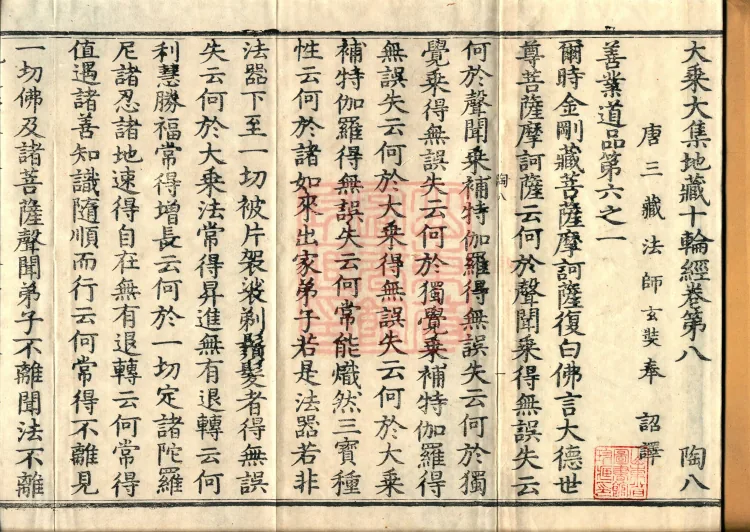 大乘大集地藏十輪經卷第八 陶八
唐三藏法師玄奘奉 詔譯
善業道品第六之一
爾時金剛藏菩薩摩訶薩復白佛言大德世
尊菩薩摩訶薩云何於聲聞乘得無誤失云
何於聲聞乘補特伽羅得無誤失云何於獨
覺乘得無誤失云何於獨覺乘補特伽羅得
無誤失云何於大乘得無誤失云何於大乘
補特伽羅得無誤失云何常能熾然三寶種
性云何於諸如來出家弟子若是法器若非
法器下至一切被片袈裟剃鬚髮者得無誤
失云何於大乘法常得昇進無有退轉云何
利慧勝福常得增長云何於一切定諸陀羅
尼諸忍諸地速得自在無有退轉云何常得
值遇諸善知識隨順而行云何常得不離見
一切佛及諸菩薩聲聞弟子不離聞法不離